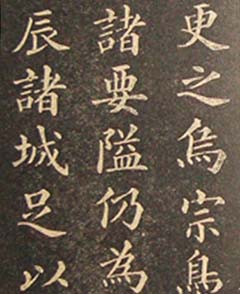 更之烏宗島
諸要隘仍為
辰諸城足以